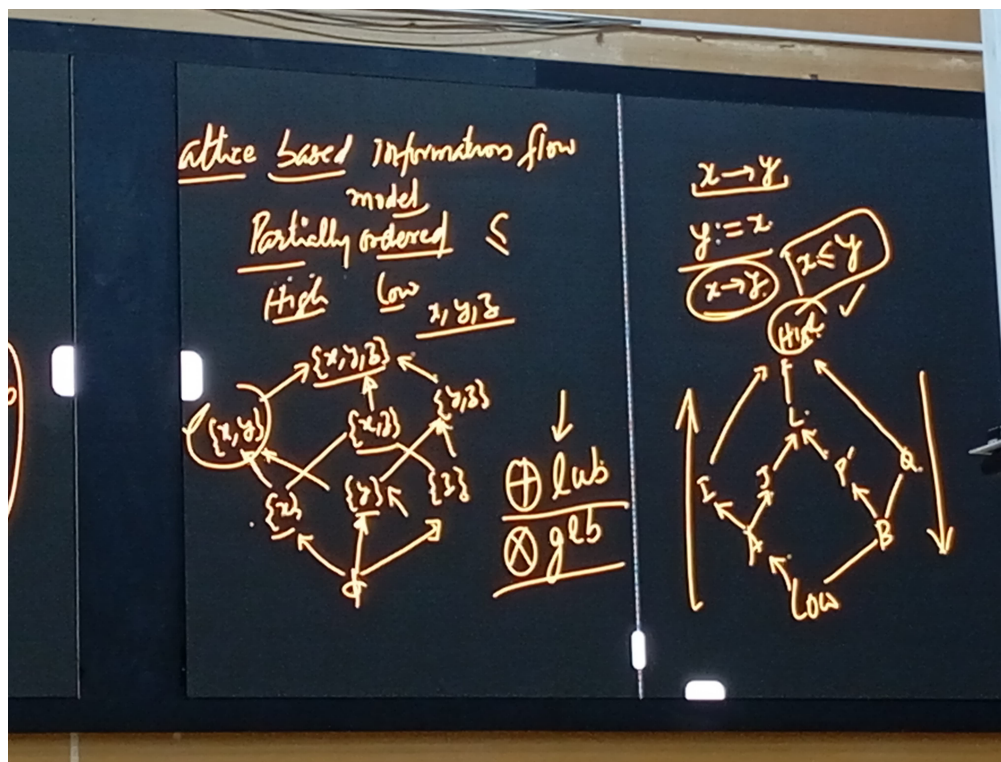 attice based Information flow
model
Partially ordered ≤
High Low
x, y, z
{x,y,z}
{x,y} {x,z} {y,z}
{x} {y} {z}
ϕ
⊕ lub
⊗ glb
x → y
y := x
x → y
x ≤ y
High
L
I J P Q
A B
Low